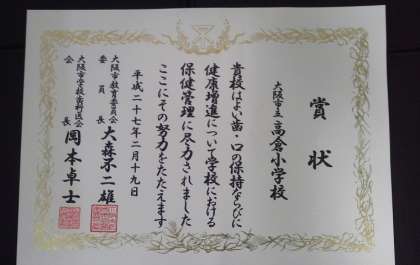 賞状
大阪市立 高倉小学校
貴校はよい歯・口の保持ならびに
健康増進について学校における
保健管理に尽力されました
ここにその努力をたたえます
平成二十七年二月十九日
大阪市教育委員会
委員長 大森不二雄
大阪市学校歯科医会
会長 岡本卓士